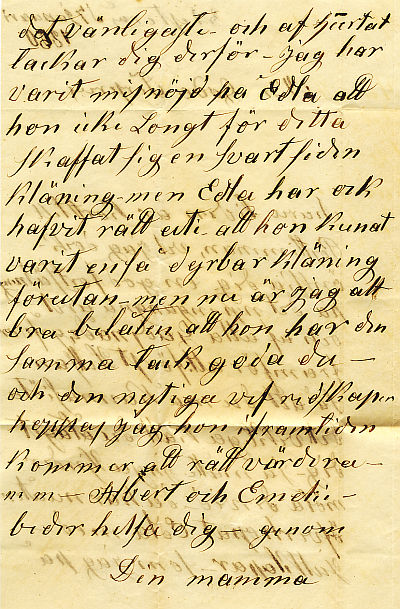 det vänligaste - och af hjertat
tackar dig derför - jag har
varit misnöjd på Edla att
hon icke Longt för ditta
skaffat sig en svart siden
kläning - men Edla har ock
hafvit rätt uti att hon kunat
varit en så dyrbar kläning
förutan - men nu är jag att
bra belåten att hon har den
samma tack goda du -
och den nytiga vef redskapen
hoppas jag hon i framtiden
kommer att rätt värdera -
m m - Albert och Emeli -
beder helsa dig - genom
Din mamma